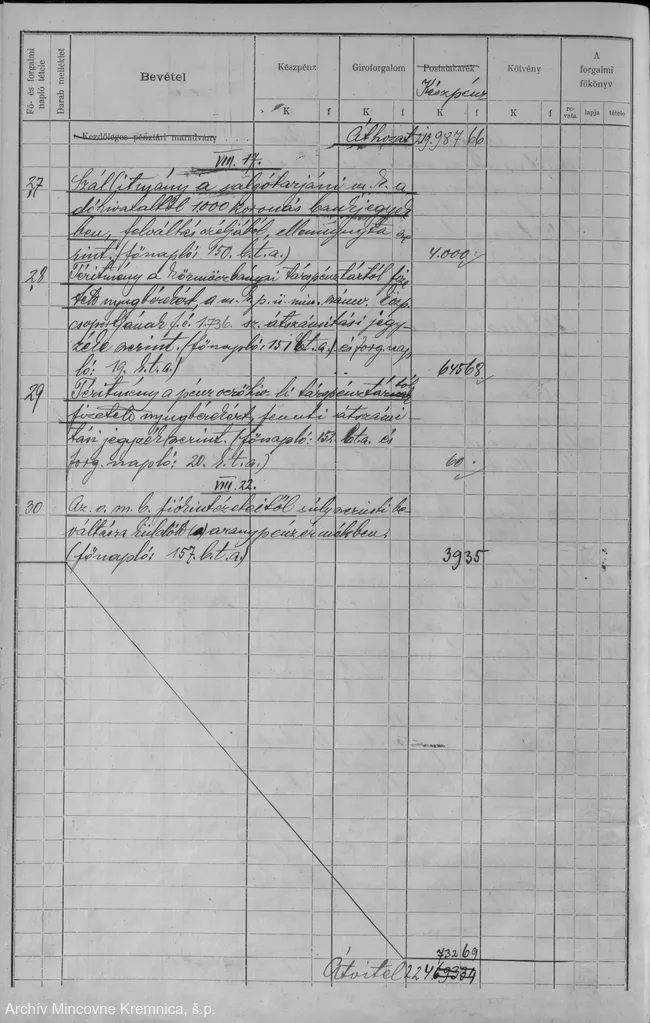 Fő- és forgalmi napló tétele
Darab melléklet
Bevétel
Készpénz
Giroforgalom
Postatakarék
Készpénz
Kötvény
A forgalmi főkönyv
K f K f K f K f rovata lapja tétele
Kezdőleges pénztári maradvány Áthozat 219.987 66
VIII. 17.
27 Szállitmány a salgótarjáni m. k. a
dóhivataltól 1000 koronás bankjegyek
ben, felváltás céljából, ellennyugta
szerint. (főnapló: 150. b. t. a.) 4.000
28 Téritmény a körmöczbányai társpénztártól
nyugbérekért, a m. k. p. ü. min.
csoportjának f. é. 1736. sz. átszámitási jegy
zéke szerint. (főnapló: 151 b. t. a.) és forg. nap
ló: 19. b. t. a.) 645 68
29 Téritmény a pénzverőhiv.-li társpénztártól
fizetett nyugbérekért, fennti átszámi-
tási jegyzék szerint. (főnapló: 152. b. t. a. és
forg. napló: 20. b. t. a.) 60
VIII. 22.
30 Az o. m. b. fiókintézeteitől súly szerinti be
váltásra küldött aranypénzérmékben.
(főnapló: 157. b. t. a.) 39 35
732 69
Átvitel 224
Archív Mincovne Kremnica, š.p.